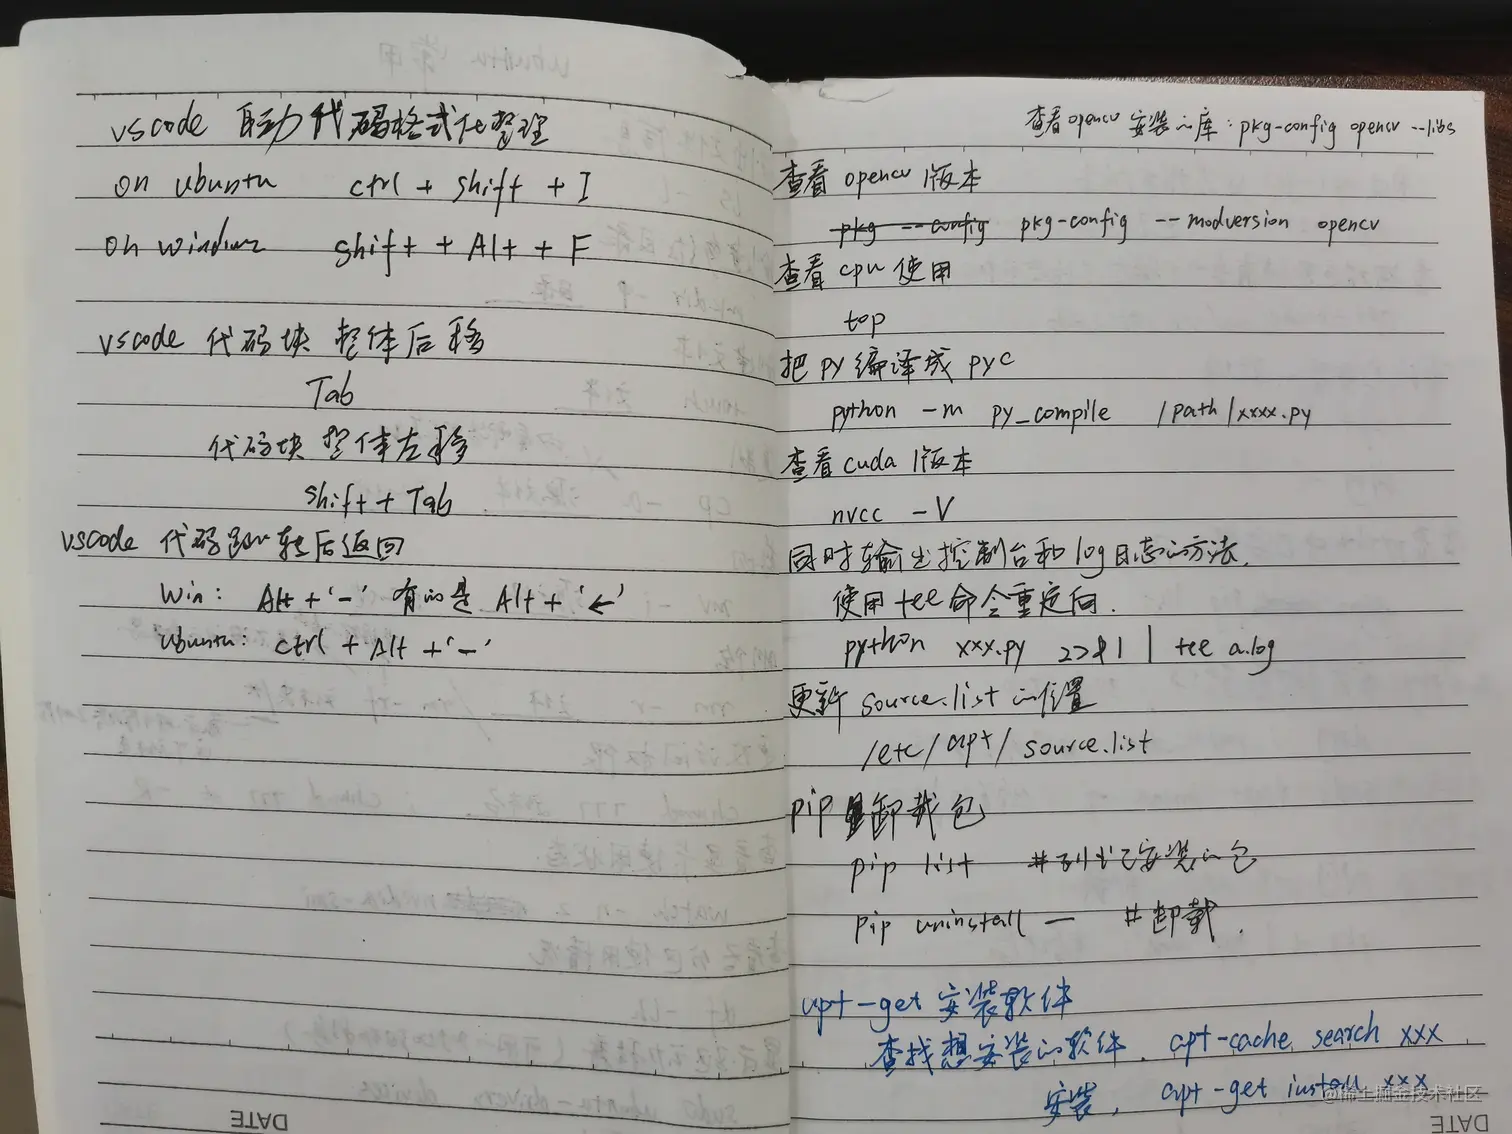 vscode 自动代码格式化整理
on ubuntu ctrl + shift + I
on windows shift + Alt + F
vscode 代码块 整体后移
Tab
代码块 整体左移
shift + Tab
vscode 代码跳转后返回
Win: Alt + '-' 有的是 Alt + '←'
Ubuntu: ctrl + Alt + '-'
DATE
查看opencv 安装的库: pkg-config opencv --libs
查看 opencv 版本
pkg --config pkg-config --modversion opencv
查看 cpu 使用
top
把 py 编译成 pyc
python -m py_compile /path/xxxx.py
查看cuda 版本
nvcc -V
同时输出控制台和log日志的方法.
使用tee命令重定向.
python xxx.py 2>&1 | tee a.log
更新 source.list 的位置
/etc/apt/source.list
pip 卸载包
pip list #列出已安装的包
pip uninstall — #卸载.
apt-get 安装软件
查找想安装的软件. apt-cache search xxx
安装, apt-get install xxx
@稀土掘金技术社区
DATE